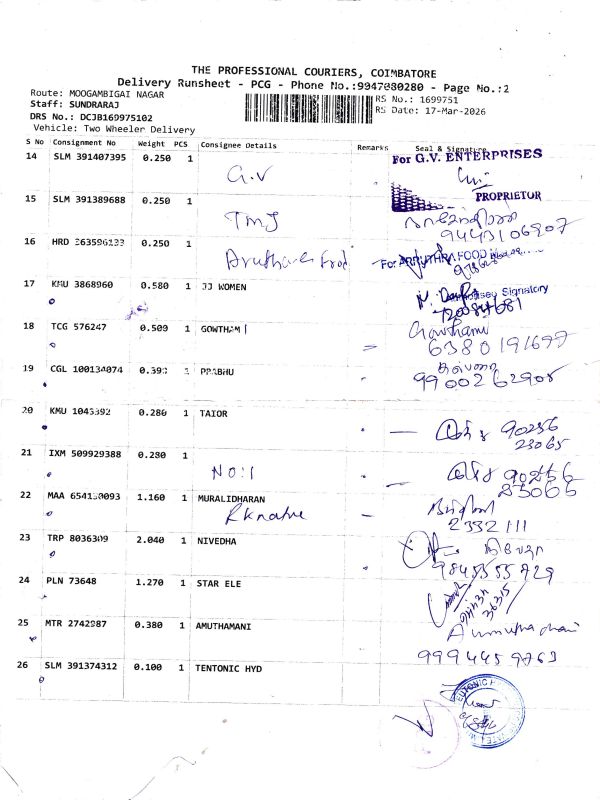 THE PROFESSIONAL COURIERS, COIMBATORE
Delivery Runsheet - PCG - Phone No.:9047080280 - Page No.:2
Route: MOOGAMBIGAI NAGAR
RS No.: 1699751
Staff: SUNDRARAJ
RS Date: 17-Mar-2026
DRS No.: DCJB169975102
Vehicle: Two Wheeler Delivery
S No Consignment No Weight PCS Consignee Details Remarks Seal & Signature
14 SLM 391407395 0.250 1 G.V For G.V. ENTERPRISES
PROPRIETOR
15 SLM 391389688 0.250 1 TMJ
9443106907
16 HRD 0.250 1 Food For ARRUTHRA FOOD
17 KMU 3868960 0.580 1 JJ WOMEN
Signatory
18 TCG 576247 0.500 1 GOWTHAM Gowtham
6380191697
19 CGL 100134074 0.390 PRABHU
9900262908
20 KMU 1043392 0.280 1 TAIOR 90256
23065
21 IXM 509929388 0.230 1 NO:1 90256
23065
22 MAA 1.160 1 MURALIDHARAN
2332111
23 TRP 8036309 2.040 1 NIVEDHA நிவேதா
9845555729
24 PLN 73648 1.270 1 STAR ELE
25 MTR 2742987 0.380 1 AMUTHAMANI
9994459763
26 SLM 391374312 0.100 1 TENTONIC HYD